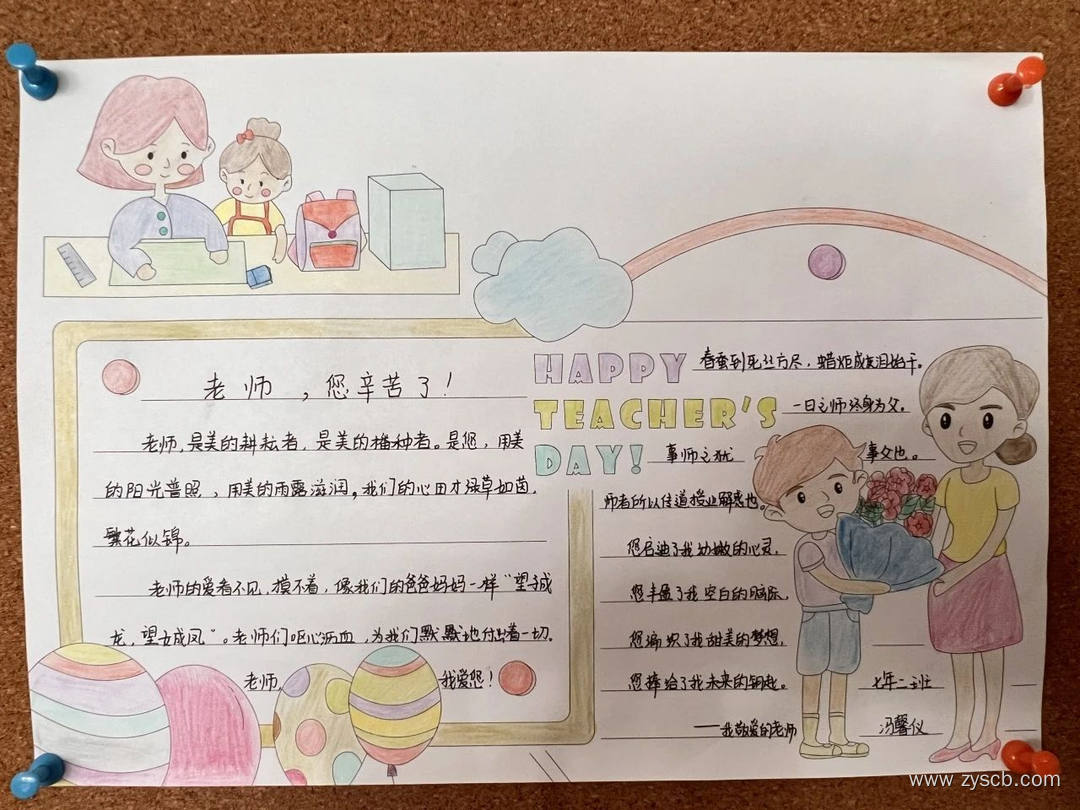 老师，您辛苦了！
老师，是美的耕耘者，是美的播种者。是您，用美
的阳光普照，用美的雨露滋润。我们的心田才绿草如茵，
繁花似锦。
老师的爱看不见，摸不着，像我们的爸爸妈妈一样“望子成
龙，望女成凤”。老师们呕心沥血，为我们默默地付出着一切。
老师，我爱您！
HAPPY
TEACHER'S
DAY!
春蚕到死丝方尽，蜡炬成灰泪始干。
一日之师终身为父。
事师之犹事父也。
师者所以传道授业解惑也。
您启迪了我幼嫩的心灵，
您丰盈了我空白的脑际，
您编织了我甜美的梦想，
您捧给了我未来的钥匙。
——我敬爱的老师
七年二班
冯馨仪
www.zyscb.com